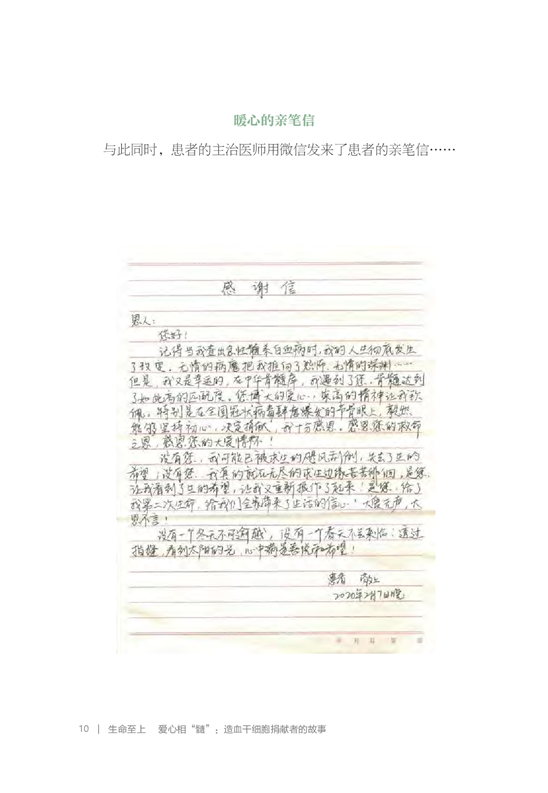 暖心的亲笔信
与此同时，患者的主治医师用微信发来了患者的亲笔信……
感谢信
恩人：
您好！
记得当我查出急性髓系白血病时，我的人生彻底发生
了改变。无情的病魔把我推向了
但是，我又是幸运的，在中华骨髓库，我遇到了您，骨髓达到
了如此高的匹配度。您博大的爱心，崇高的精神让我钦
佩。特别是在全国冠状病毒肆虐爆发的节骨眼上，毅然
能够坚持初心，决定捐献，我十分感恩。感恩您的救命
之恩，感恩您的大爱情怀！
没有您，我可能已被
希望；没有您，我真的就在无尽的求生边缘苦苦徘徊，是您，
让我看到了生的希望，让我又重新振作了起来！是您，给了
我第二次生命，给我们全家带来了生活的信心！大爱无声，大
恩不言！
没有一个冬天不可逾越，没有一个春天不会来临；透过
指缝，看到太阳的光，心中满是
患者 敬上
2020年2月7日晚
10 | 生命至上 爱心相“髓”：造血干细胞捐献者的故事